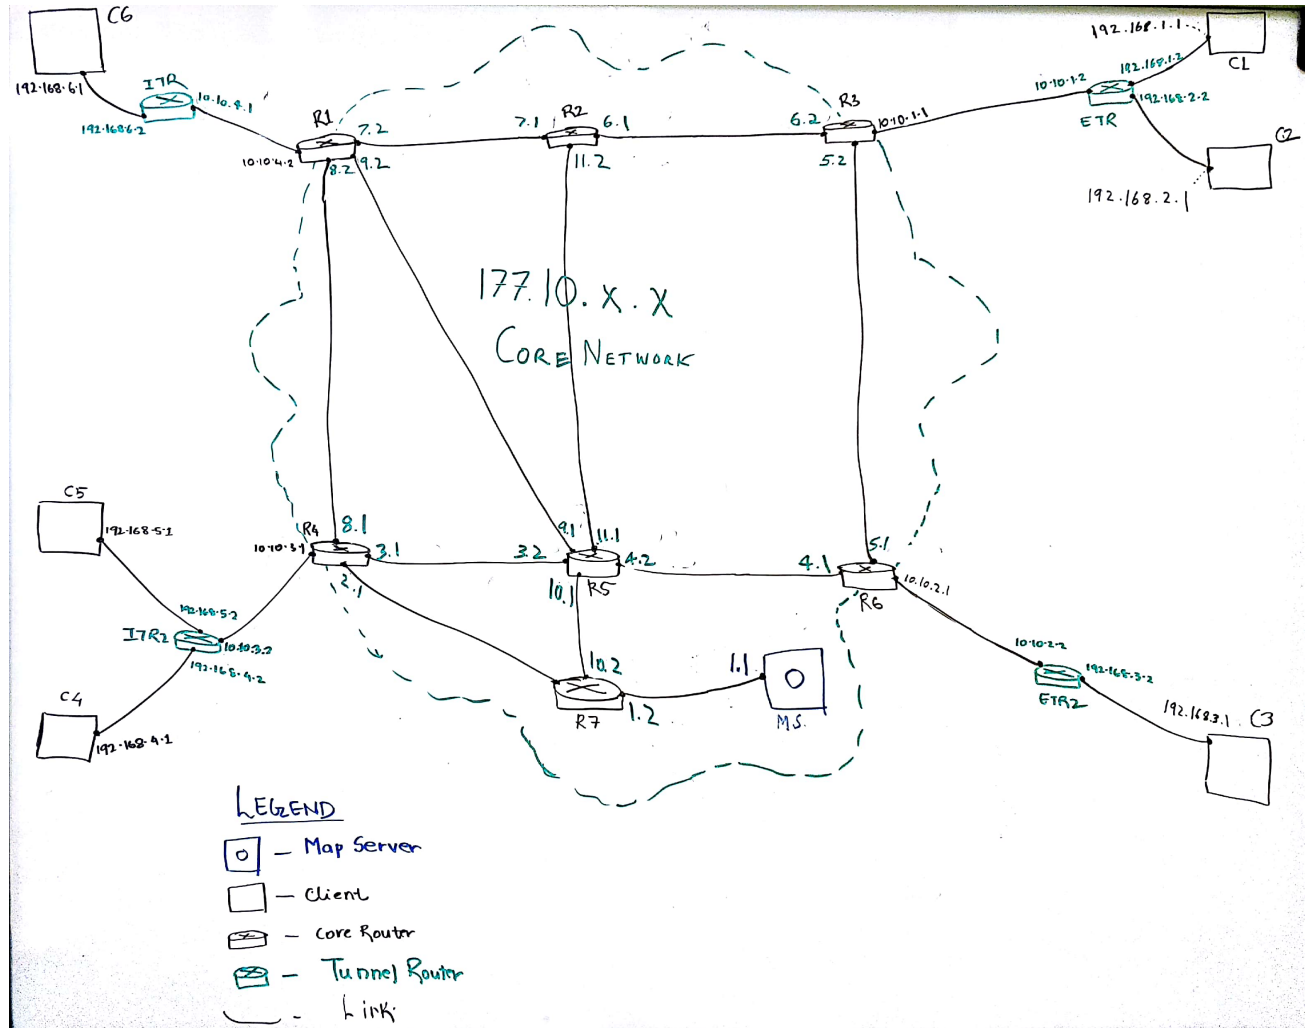 C6
192.168.6.1
ITR
10.10.4.1
192.168.6.2
R1
10.10.4.2
7.2
8.2
9.2
7.1
R2
6.1
11.2
6.2
R3
10.10.1.1
5.2
10.10.1.2
192.168.1.2
192.168.2.2
ETR
192.168.1.1
C1
C2
192.168.2.1
177.10.x.x
CORE NETWORK
C5
192.168.5.1
R4
8.1
10.10.3.1
3.1
2.1
3.2
9.1
11.1
4.2
10.1
R5
4.1
5.1
R6
10.10.2.1
192.168.5.2
ITR2
10.10.3.2
192.168.4.2
C4
192.168.4.1
10.2
R7
1.2
1.1
MS.
10.10.2.2
192.168.3.2
ETR2
192.168.3.1
C3
LEGEND
- Map Server
- Client
- Core Router
- Tunnel Router
- Link